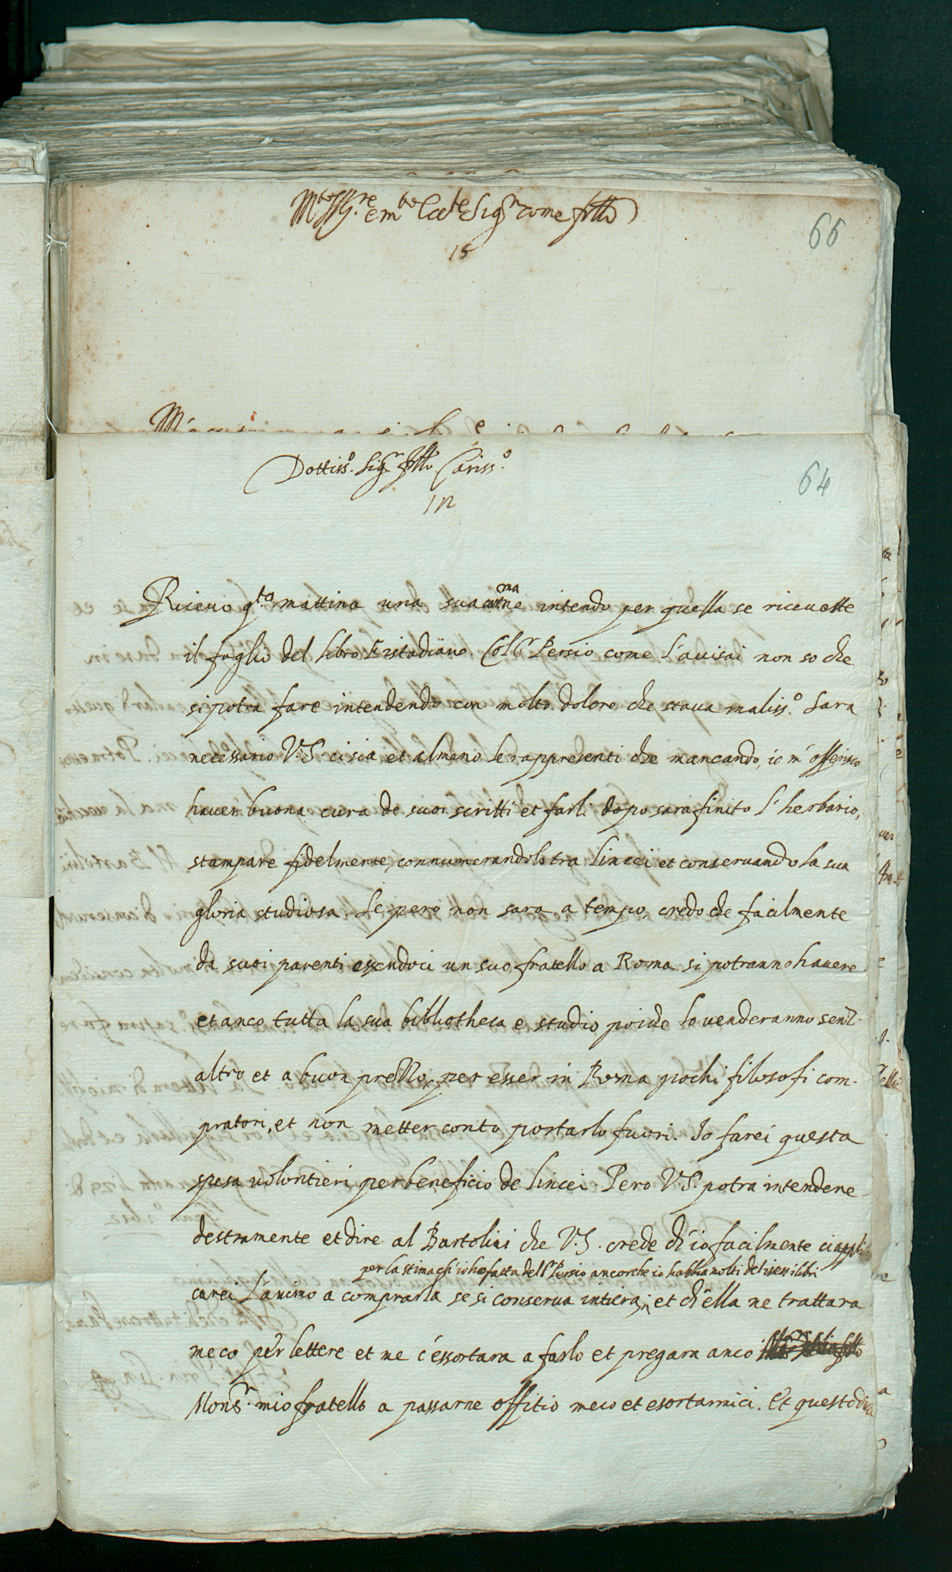 66
15
64
Dottiss.º Sig.r fr̃llo Cariss.º
Ricevo q.ta mattina una sua ma intendo per quella se ricevette
il foglio del libro Eistadiano. Col S.r Persio come l'avisai non so che
si potrà fare intendendo con molto dolore che stava maliss.º Sara
necessario V.S. ci sia et almeno le rappresenti che mancando, io m'offerisco
haver buona cura de suoi scritti et farli dopo sara finito l'herbario,
stampare fidelmente, connumerandolo tra lincei et conservando la sua
gloria studiosa. Se però non sara a tempo, credo che facilmente
da suoi parenti essendoci un suo fratello a Roma si potranno havere
et anco tutta la sua bibliotheca e studio poiche lo venderanno senz'
altro et a buon prezzo, per esser in Roma pochi filosofi com-
pratori, et non metter conto portarlo fuori. Io farei questa
spesa volontieri per beneficio de lincei Però V.S. potra intendere
destramente et dire al Bartolini che V.S. crede ch'io facilmente ci appli
per la stima ch'io ho fatta del S.r Persio ancorche io habbia molti delli stessi libri
carei l'animo a comprarla se si conserva intiera, et ch'ella ne trattara
meco per lettere et me c'essortara a farlo et pregara anco
Mons.r mio fratello a passarne offitio meco et esortarmici. Et questo